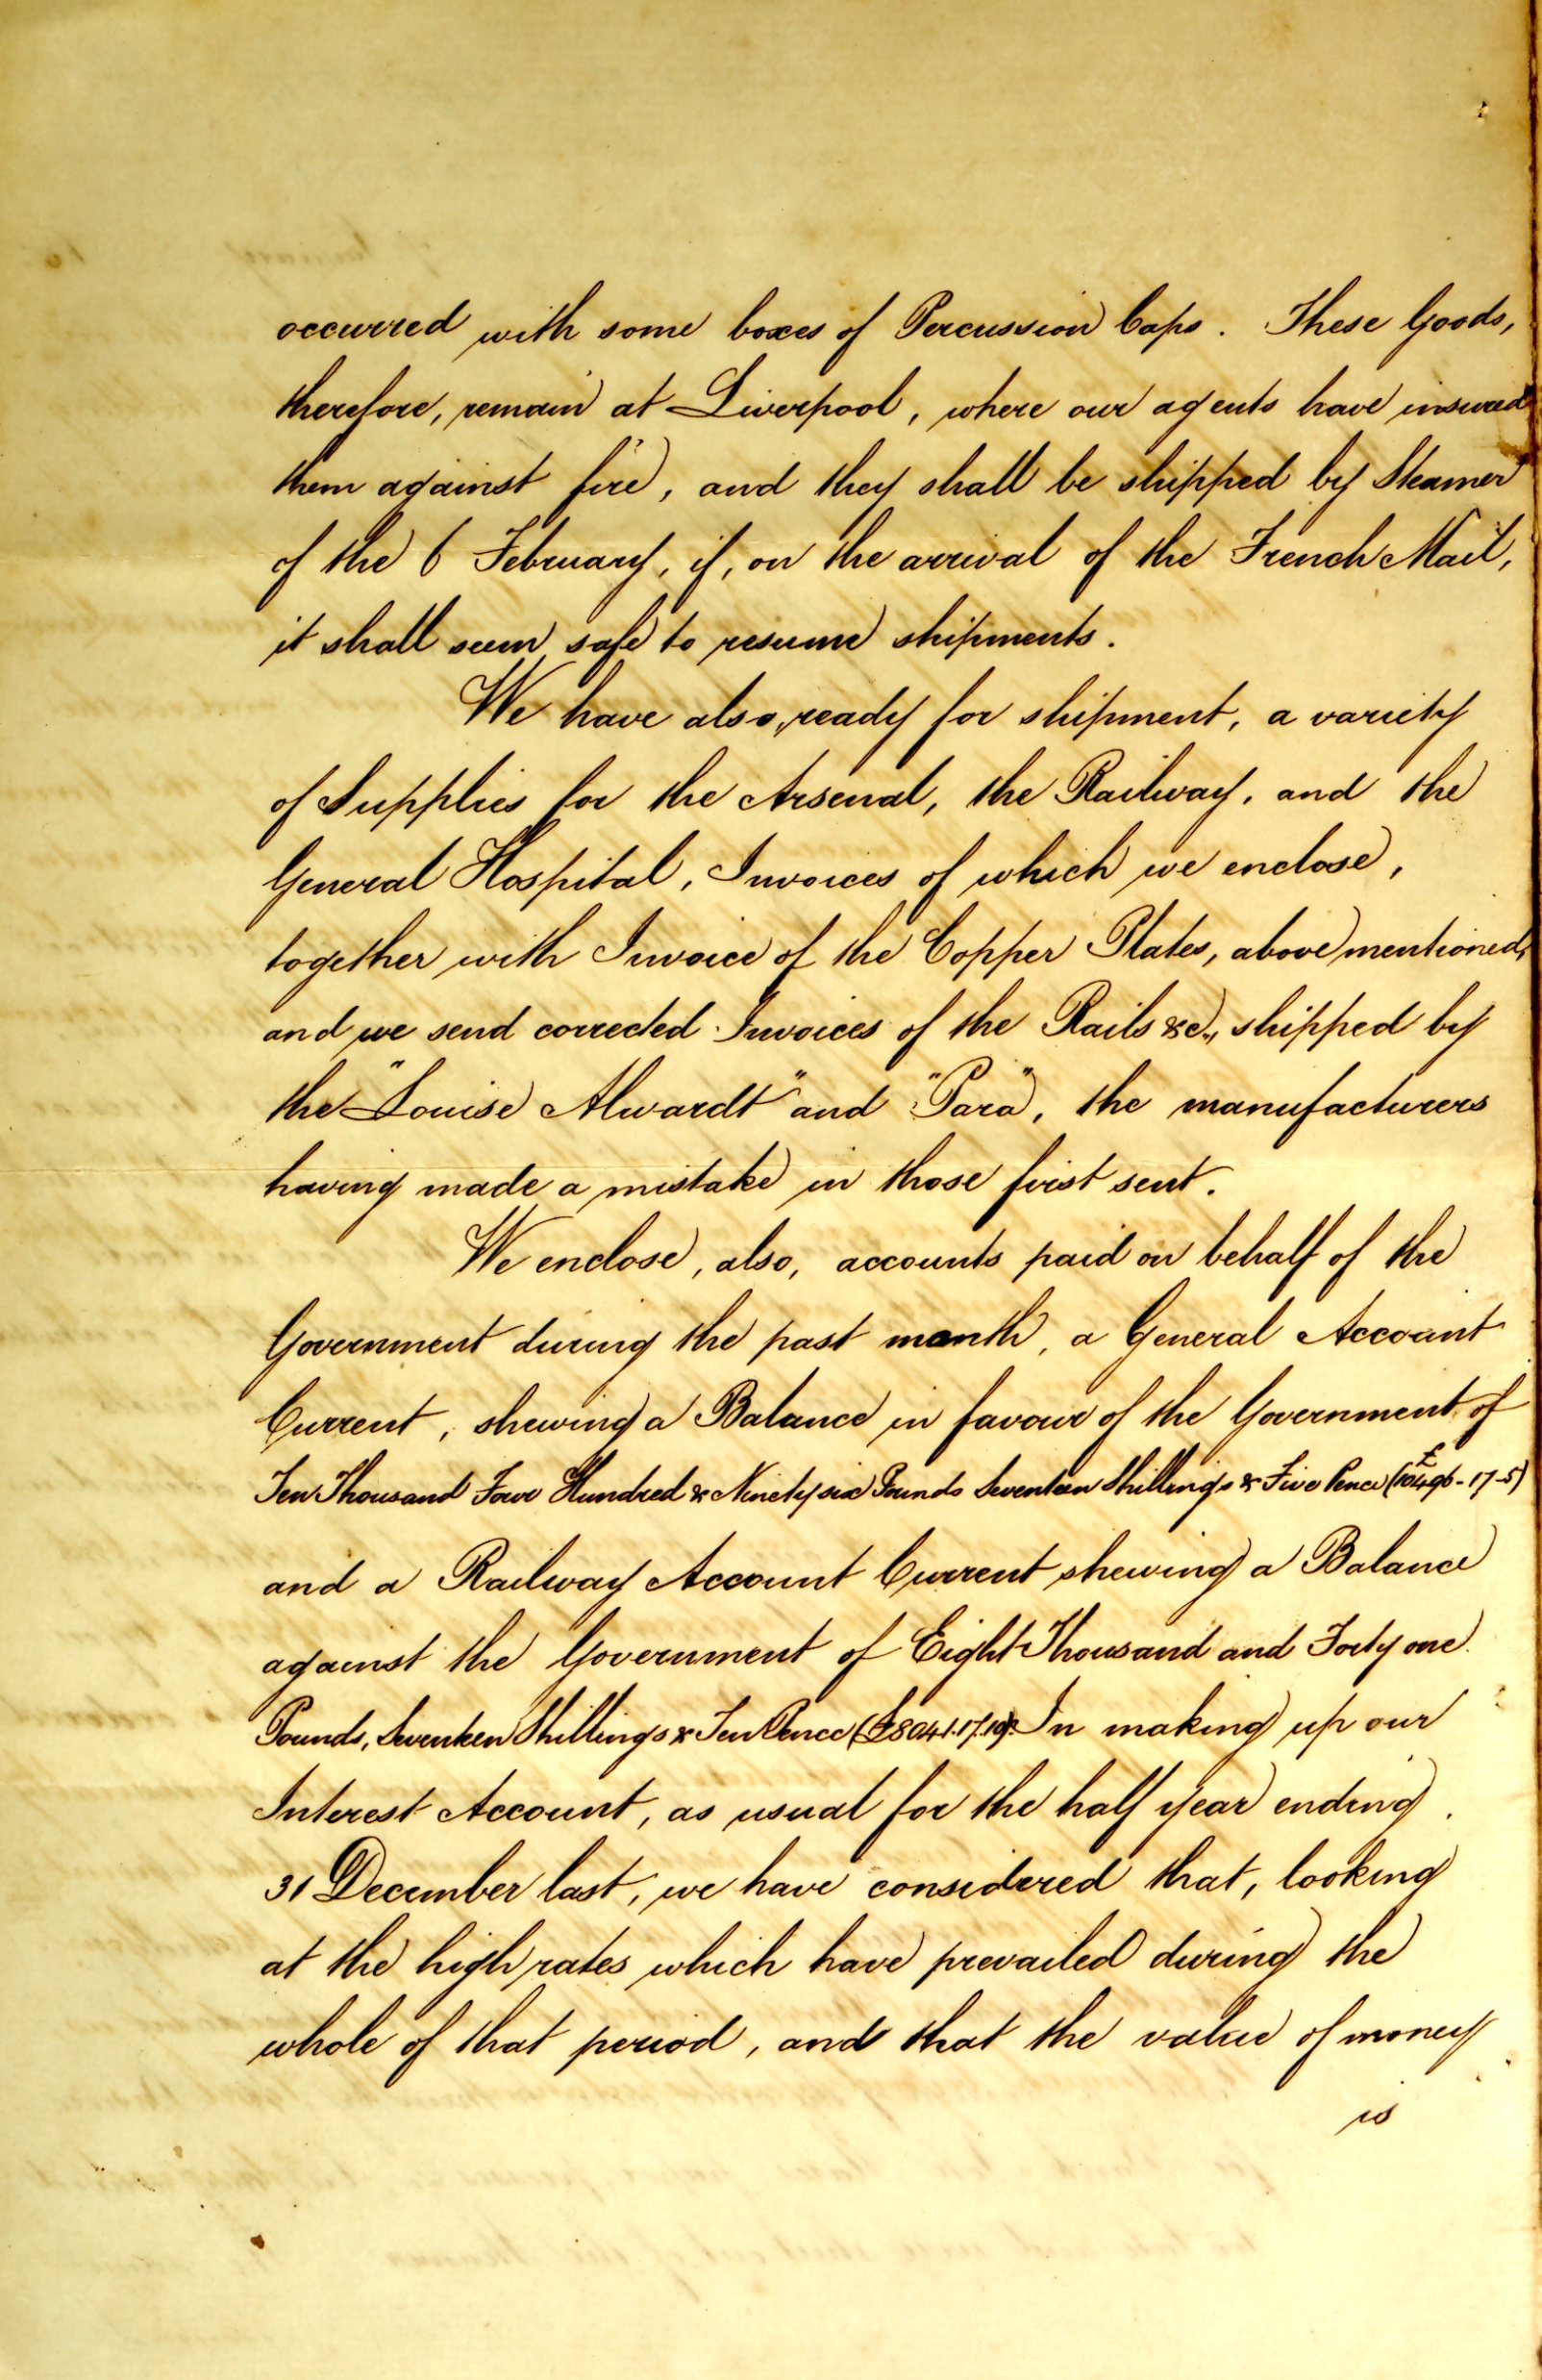 occurred with some boxes of Percussion Caps. These Goods,
therefore, remain at Liverpool, where our agents have insured
them against fire, and they shall be shipped by Steamer
of the 6 February, if, on the arrival of the French Mail,
it shall seem safe to resume shipments.
We have also, ready for shipment, a variety
of Supplies for the Arsenal, the Railway, and the
General Hospital, Invoices of which we enclose,
together with Invoice of the Copper Plates, above mentioned,
and we send corrected Invoices of the Rails &c., shipped by
the "Louise Alwardt" and "Para", the manufacturers
having made a mistake in those first sent.
We enclose, also, accounts paid on behalf of the
Government during the past month, a General Account
Current, shewing a Balance in favour of the Government of
Ten Thousand Four Hundred & Ninety six Pounds Seventeen Shillings & Five Pence (£10496-17-5)
and a Railway Account Current shewing a Balance
against the Government of Eight Thousand and Forty one
Pounds, Seventeen Shillings & Ten Pence (£8041.17.10). In making up our
Interest Account, as usual for the half year ending
31 December last, we have considered that, looking
at the high rates which have prevailed during the
whole of that period, and that the value of money
is